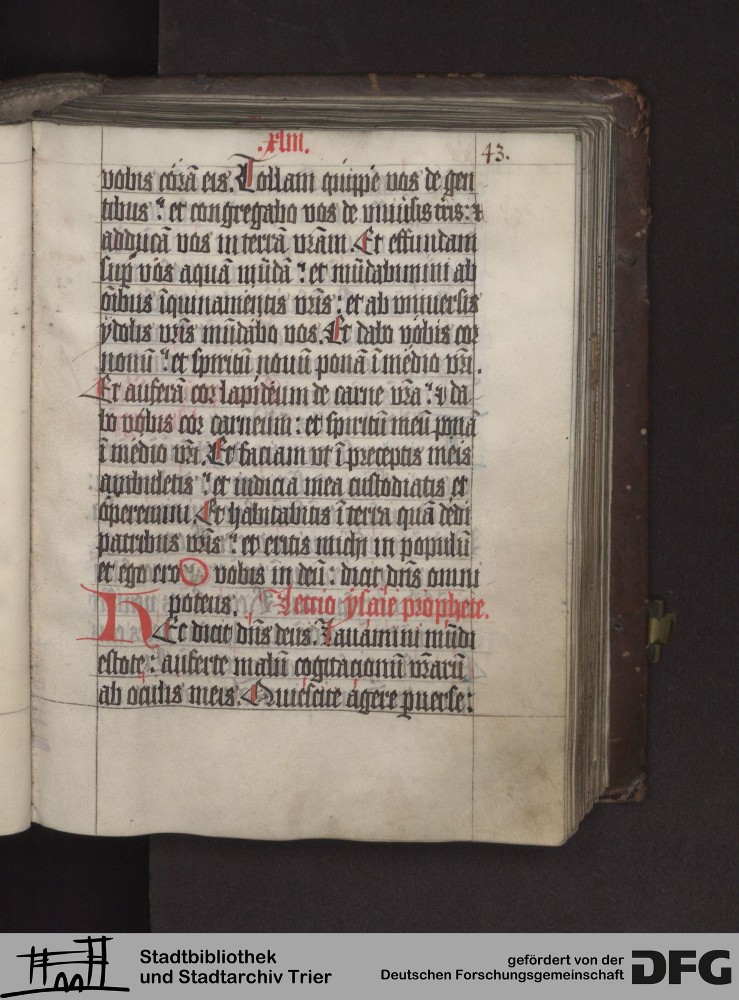 .xliii.
43.
vobis corā eis. Tollam quippe vos de gen
tibus : et congregabo vos de vniūsis tris : &
adducā vos in terrā vrām. Et effundam
sup vos aquā mūdā : et mūdabimini ab
oībus īquinamentis vrīs : et ab vniuersis
ydolis vrīs mūdabo vos. Et dabo vobis cor
nouū : et spiritū nouū ponā ī medio vrī.
Et auferā cor lapideum de carne vrā : & da
bo vobis cor carneum : et spiritū meū ponā
ī medio vrī. Et faciam vt ī preceptis meis
ambuletis : et iudicia mea custodiatis et
operemini. Et habitabitis ī terra quā dedi
patribus vrīs : et eritis michi in populū
et ego ero vobis in deū : dicit dn̄s omni
potens. Lectio ysaie prophete.
Hec dicit dn̄s deus. Lauamini mūdi
estote : auferte malū cogitacionū vrārū
ab oculis meis. Quiescite agere ꝑuerse :
Stadtbibliothek
und Stadtarchiv Trier
gefördert von der
Deutschen Forschungsgemeinschaft
DFG